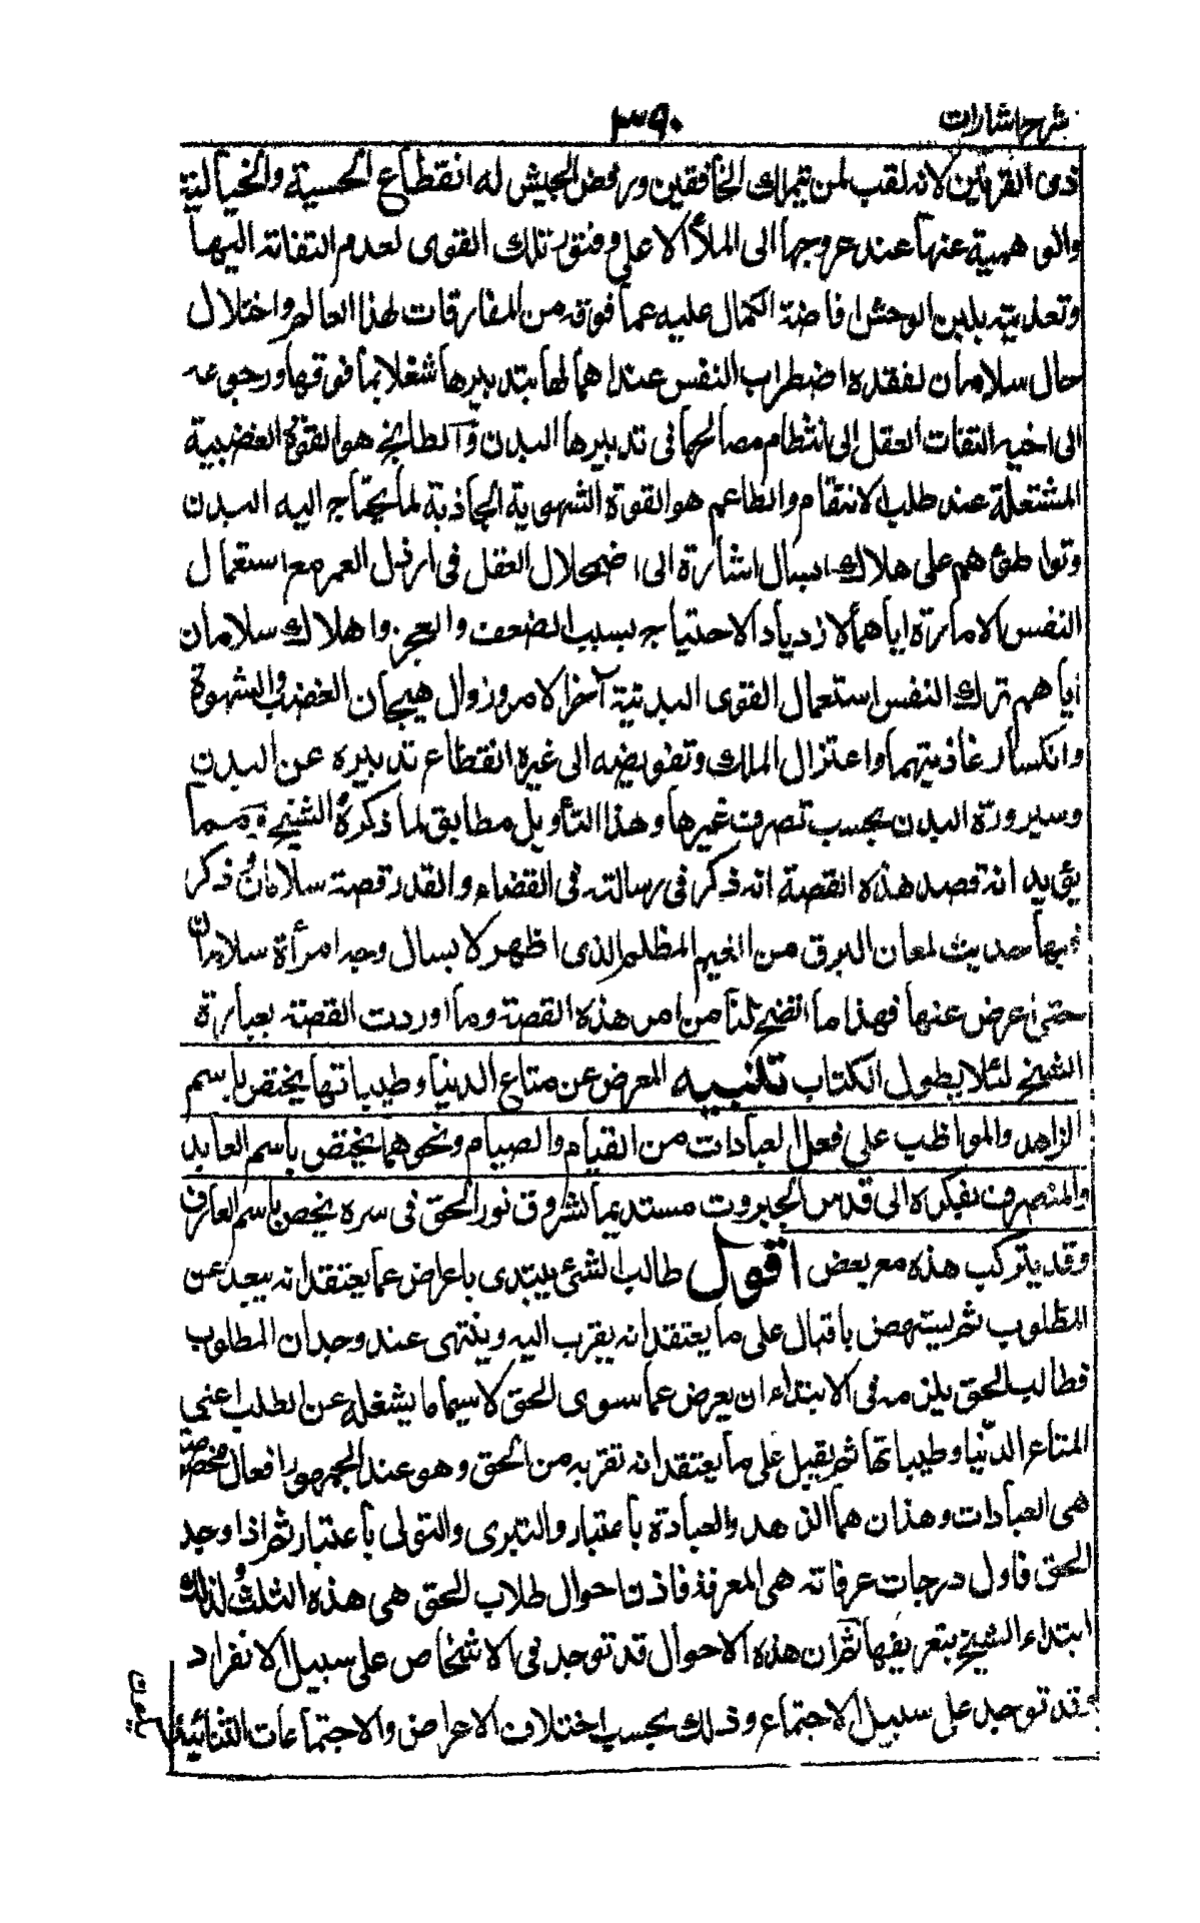 شرح اشارات
٣٩٠
ذى القرنين لانه لقب لمن تملك الخافقين ورفض الجيش له انقطاع الحسية والخيالية
والوهمية عنها عند عروجها الى الملأ الاعلى وفتور تلك القوى لعدم التفاته اليها
وتغذيته بلبن الوحش افاضة الكمال عليه عما فوقه من المفارقات لهذا العالم واختلال
حال سلامان لفقده اضطراب النفس عند اهمالها بتدبيرها شغلا بما فوقها ورجوعه
الى اخيه التفات العقل الى انتظام مصالحها فى تدبيرها البدن والطابخ هو القوة الغضبية
المشتعلة عند طلب الانتقام والطاعم هو القوة الشهوية الجاذبة لما يحتاج اليه البدن
وتواطئهم على هلاك ابسال اشارة الى اضمحلال العقل فى ارذل العمر مع استعمال
النفس الامارة اياهما لازدياد الاحتياج بسبب الضعف والعجز واهلاك سلامان
اياهم ترك النفس استعمال القوى البدنية آخر الامر وزوال هيجان الغضب والشهوة
وانكسار غاذيتهما واعتزال الملك وتفويضه الى غيره انقطاع تدبيره عن البدن
وسيرورة البدن بحسب تصرف غيرها وهذا التأويل مطابق لما ذكره الشيخ ومما
يؤيد انه قصد هذه القصة انه ذكر فى رسالته فى القضاء والقدر قصة سلامان وذكر
فيها حديث لمعان البرق من الغيم المظلم الذى اظهر لابسال وجه امرأة سلامان
حتى اعرض عنها فهذا ما اتضح لنا من امر هذه القصة وما اوردت القصة بعبارة
الشيخ لئلا يطول الكتاب تنبيه المعرض عن متاع الدنيا وطيباتها يختص باسم
الزاهد والمواظب على فعل العبادات من القيام والصيام ونحوهما يختص باسم العابد
والمنصرف بفكره الى قدس الجبروت مستديما لشروق نور الحق فى سره يخص باسم العارف
وقد يتركب هذه مع بعض اقول طالب الشئ يبتدى باعراض عما يعتقد انه يبعد عن
المطلوب ثم يستهض باقبال على ما يعتقد انه يقرب اليه وينتهى عند وجدان المطلوب
فطالب الحق يلزمه فى الابتداء ان يعرض عما سوى الحق لاسيما ما يشغله عن الطلب اعنى
المتاع الدنيا وطيباتها ثم يقبل على ما يعتقد انه تقربه من الحق وهو عند الجمهور افعال مخصصة
هى العبادات وهذان هما الزهد والعبادة باعتبار والتبرى والتولى باعتبار ثم اذا وجد
الحق فاول درجات عرفانه هى المعرفة فاذن احوال طلاب الحق هى هذه الثلث ولذلك
ابتداء الشيخ بتعريفها ثم ان هذه الاحوال قد توجد فى الاشخاص على سبيل الانفراد
وقد توجد على سبيل الاجتماع وذلك بحسب اختلاف الاعراض والاجتماعات الثنائية